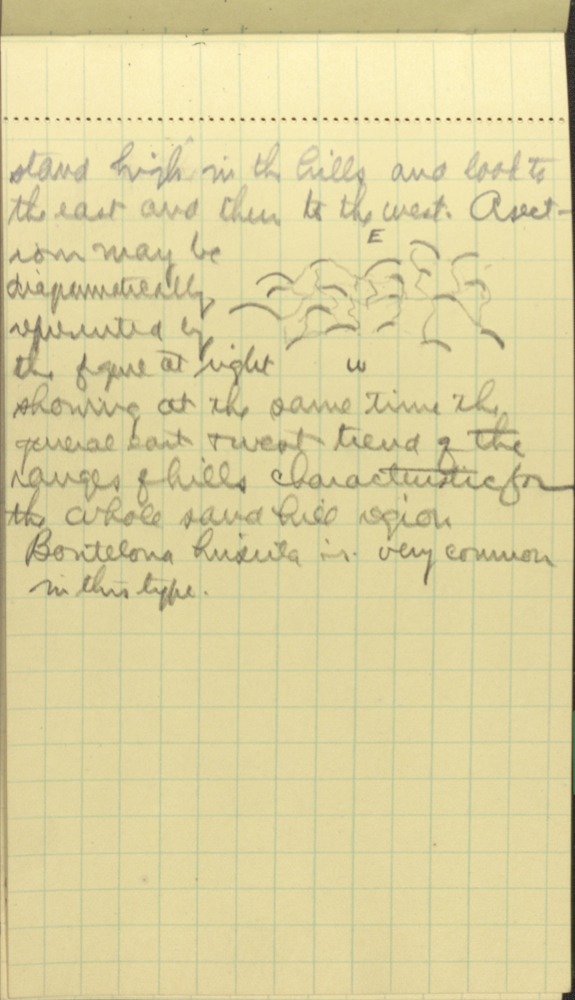 stand high in the hills and look to
the east and then to the west. A sect-
ion may be
E
diagrammetrically
represented by
the figure at right
W
showing at the same time the
general east & west trend of the
ranges of hills characteristic for
the whole sand hill region
Bouteloua hirsuta is very common
in this type.